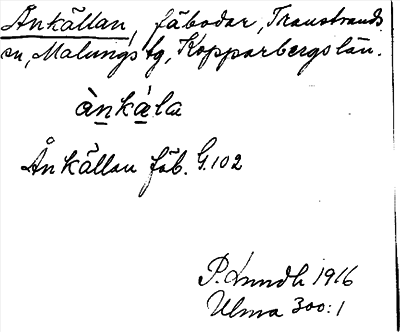 Ånkällan, fäbodar, Transtrands
sn, Malungs tg, Kopparbergs län.
ànkàla
Ånkällan fäb. G. 102
P. Lundh 1916
Ulma 300:1